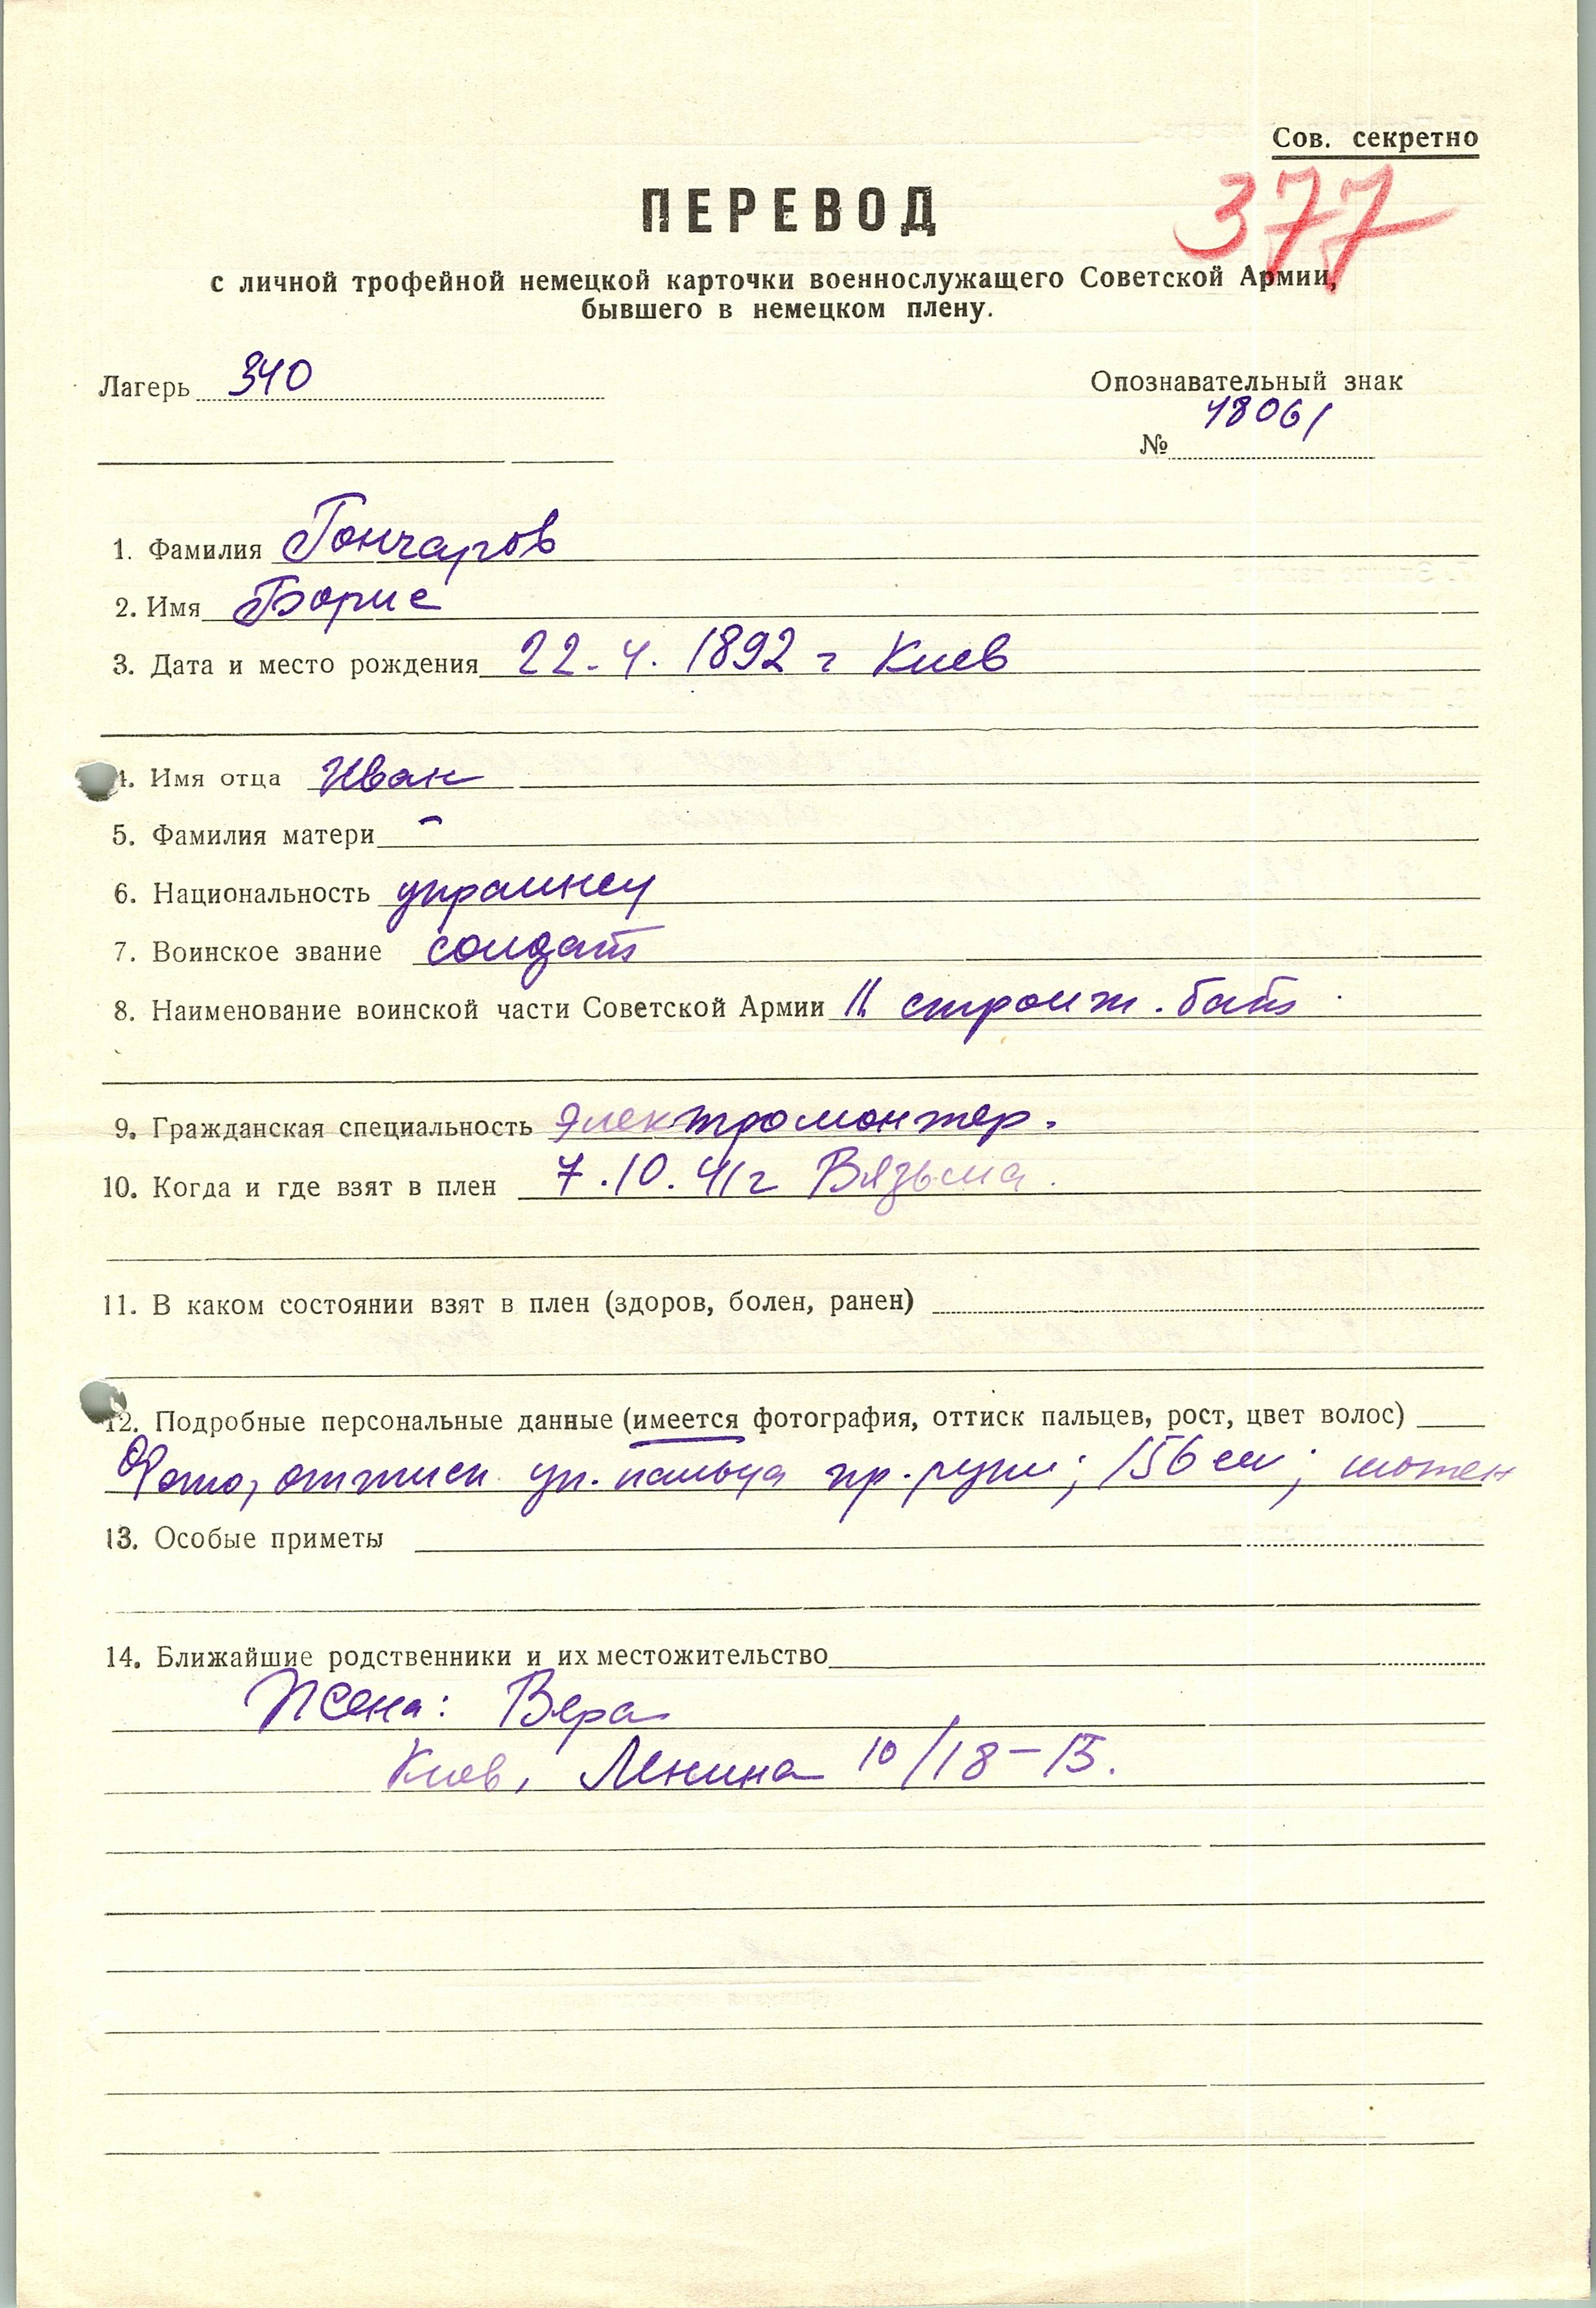 Сов. секретно
377
ПЕРЕВОД
с личной трофейной немецкой карточки военнослужащего Советской Армии,
бывшего в немецком плену.
Лагерь 340
Опознавательный знак
№ 48061
1. Фамилия Гончаров
2. Имя Борис
3. Дата и место рождения 22.4.1892 г Киев
4. Имя отца Иван
5. Фамилия матери –
6. Национальность украинец
7. Воинское звание солдат
8. Наименование воинской части Советской Армии строит. бат
9. Гражданская специальность Электромонтер.
10. Когда и где взят в плен 7.10.41г Вязьма.
11. В каком состоянии взят в плен (здоров, болен, ранен)
12. Подробные персональные данные (имеется фотография, оттиск пальцев, рост, цвет волос)
Фото, оттиск ук. пальца пр. руки; 156 см; шатен
13. Особые приметы
14. Ближайшие родственники и их местожительство
Жена: Вера
Киев, Ленина 10/18-15.